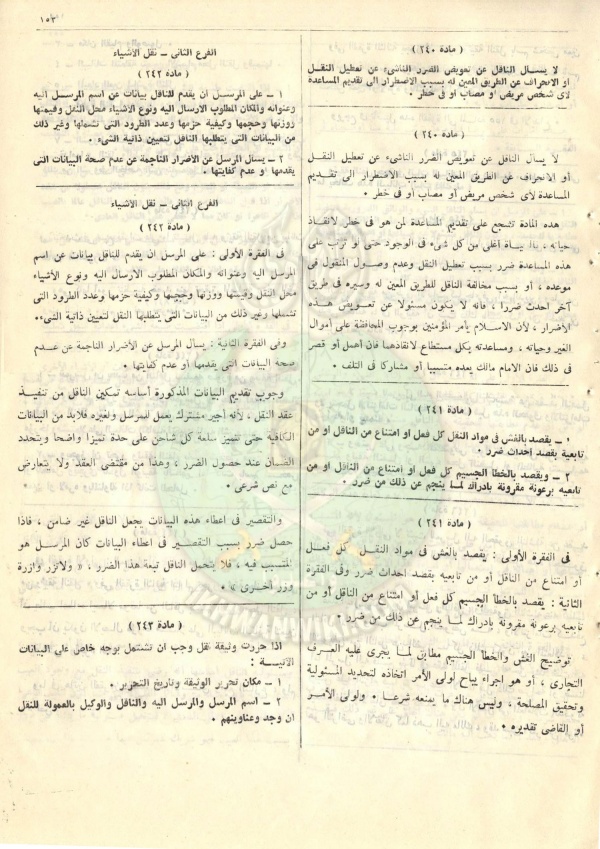 ١٥٣
( مادة ٢٤٠ )
لا يسأل الناقل عن تعويض الضرر الناشىء عن تعطيل النقل
او الانحراف عن الطريق المعين له بسبب الاضطرار الى تقديم مساعدة
لاى شخص مريض أو مصاب أو فى خطر .
( مادة ٢٤٠ )
لا يسأل الناقل عن تعويض الضرر الناشىء عن تعطيل النقل
أو الانحراف عن الطريق المعين له بسبب الاضطرار الى تقديم
المساعدة لأى شخص مريض أو مصاب أو فى خطر .
هذه المادة تشجع على تقديم المساعدة لمن هو فى خطر لانقاذ
حياته ، فالحياة أغلى من كل شىء فى الوجود حتى أو ترتب على
هذه المساعدة ضرر بسبب تعطيل النقل وعدم وصول المنقول فى
موعده ، أو بسبب مخالفة الناقل للطريق المعين له وسيره فى طريق
آخر أحدث ضررا ، فانه لا يكون مسئولا عن تعويض هذه
الأضرار ، لأن الاسلام يأمر المؤمنين بوجوب المحافظة على أموال
الغير وحياته ، ومساعدته بكل مستطاع لانقاذهما فان أهمل أو قصر
فى ذلك فان الامام مالك يعده متسببا أو مشاركا فى التلف .
( مادة ٢٤١ )
١ ــ يقصد بالغش فى مواد النقل كل فعل او امتناع من الناقل او من
تابعيه بقصد احداث ضرر .
٢ ــ ويقصد بالخطأ الجسيم كل فعل او امتناع من الناقل او من
تابعيه برعونة مقرونة بادراك لما ينجم عن ذلك من ضرر .
( مادة ٢٤١ )
فى الفقرة الأولى : يقصد بالغش فى مواد النقل كل فعل
أو امتناع من الناقل أو من تابعيه بقصد احداث ضرر وفى الفقرة
الثانية : يقصد بالخطأ الجسيم كل فعل أو امتناع من الناقل أو من
تابعيه برعونة مقرونة بأدراك لما ينجم عن ذلك من ضرر .
توضيح الغش والخطأ الجسيم مطابق لما يجرى عليه العرف
التجارى ، أو هو اجراء يباح لولى الأمر اتخاذه لتحديد المسئولية
وتحقيق المصلحة ، وليس هناك ما يمنعه شرعا . ولولى الأمر
أو القاضى تقديره .
الفرع الثانى ــ نقل الأشياء
( مادة ٢٤٢ )
١ ــ على المرسل ان يقدم للناقل بيانات عن اسم المرسل اليه
وعنوانه والمكان المطلوب الارسال اليه ونوع الأشياء محل النقل وقيمتها
ووزنها وحجمها وكيفية حزمها وعدد الطرود التى تشملها وغير ذلك
من البيانات التى يتطلبها الناقل لتعيين ذاتية الشىء .
٢ ــ يسأل المرسل عن الأضرار الناجمة عن عدم صحة البيانات التى
يقدمها او عدم كفايتها .
الفرع الثانى ــ نقل الأشياء
( مادة ٢٤٢ )
فى الفقرة الأولى : على المرسل ان يقدم للناقل بيانات عن اسم
المرسل اليه وعنوانه والمكان المطلوب الارسال اليه ونوع الأشياء
محل النقل وقيمتها ووزنها وحجمها وكيفية حزمها وعدد الطرود التى
تشملها وغير ذلك من البيانات التى يتطلبها النقل لتعيين ذاتية الشىء .
وفى الفقرة الثانية : يسأل المرسل عن الأضرار الناجمة عن عدم
صحة البيانات التى يقدمها أو عدم كفايتها .
وجوب تقديم البيانات المذكورة أساسه تمكين الناقل من تنفيذ
عقد النقل ، لأنه أجير مشترك يعمل للمرسل ولغيره فلابد من البيانات
الكافية حتى تتميز سلعة كل شاحن على حدة تميزا واضحا ويتحدد
الضمان عند حصول الضرر ، وهذا من مقتضى العقد ولا يتعارض
مع نص شرعى .
والتقصير فى اعطاء هذه البيانات يجعل الناقل غير ضامن ، فاذا
حصل ضرر بسبب التقصير فى اعطاء البيانات كان المرسل هو
المتسبب فيه ، فلا يتحمل الناقل تبعة هذا الضرر ، « ولا تزر وازرة
وزر أخرى » .
( مادة ٢٤٣ )
اذا حررت وثيقة نقل وجب ان تشتمل بوجه خاص على البيانات
الآتية :
١ ــ مكان تحرير الوثيقة وتاريخ التحرير .
٢ ــ اسم المرسل والمرسل اليه والناقل والوكيل بالعمولة للنقل
ان وجد وعناوينهم .
IKHWANWIKI.COM